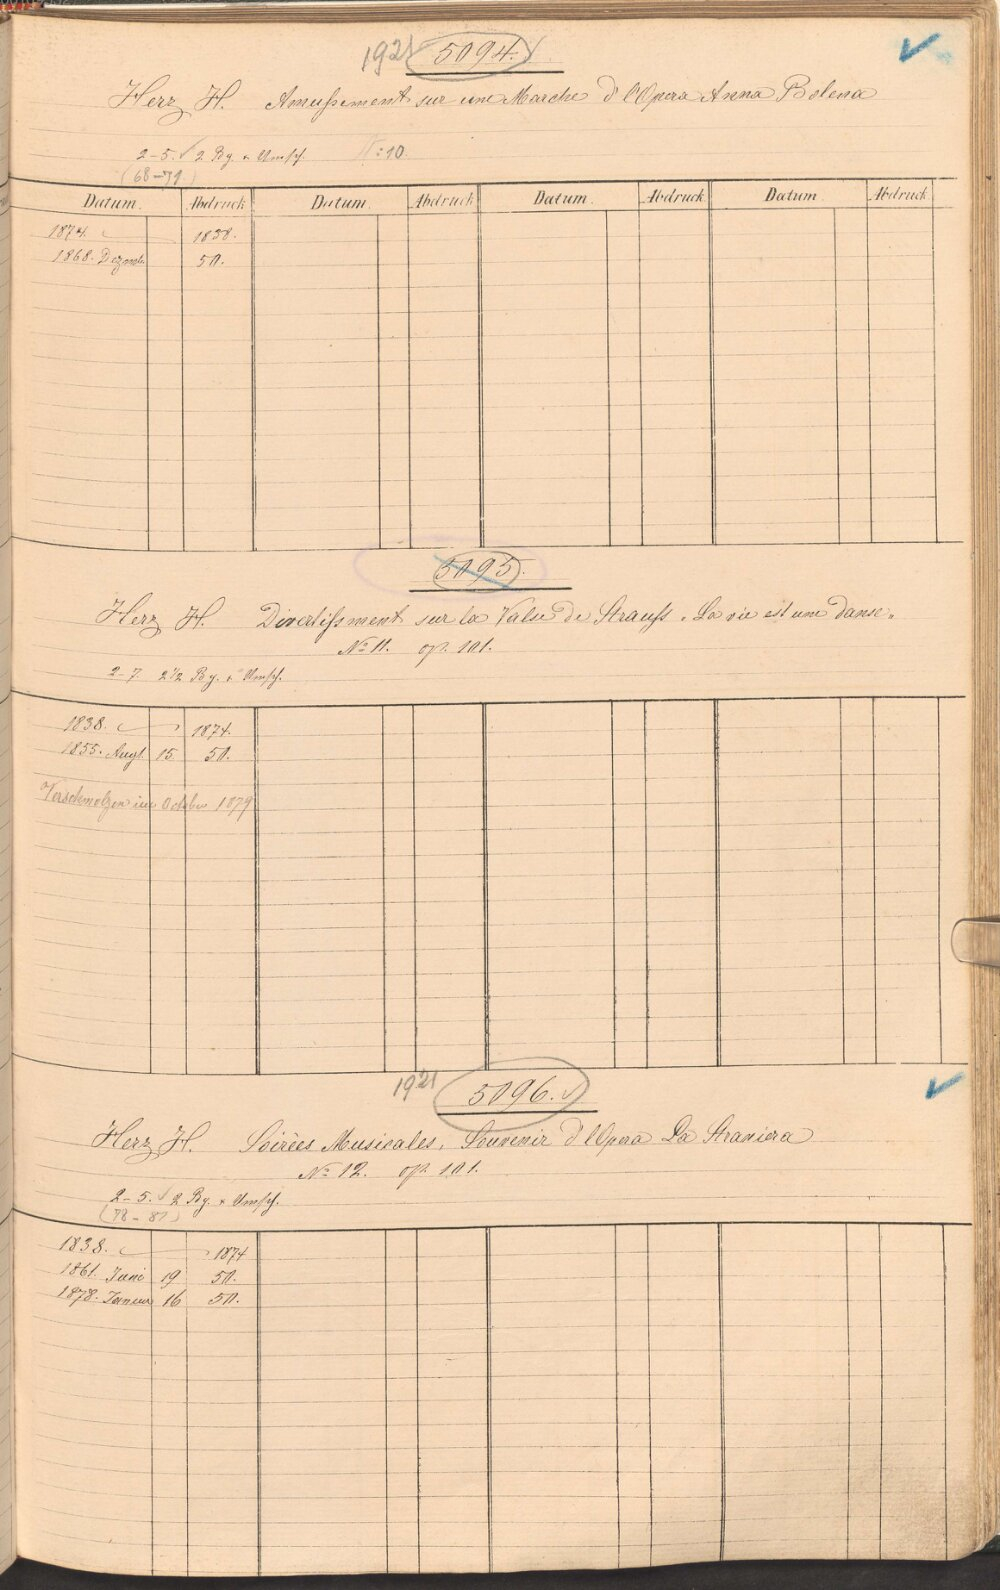 1921 5094.
Herz H. Amusement sur une Marche d'l'Opera Anna Bolena
2-5. ✓ 2 Bg. + Umsch. N: 10.
(68-71)
Datum. Abdruck Datum. Abdruck Datum. Abdruck Datum Abdruck
1874. 1838.
1868. Dezmb. 50.
5095.
Herz H. Divertissment sur la Valse de Strauss „La vie est une danse„
No. 11. op. 101.
2-7. 2 1/2 Bg. + Umsch.
1838. 1874.
1855. Augt. 15. 50.
Verschmolzen im October 1879
1921 5096.
Herz H. Soirées Musicales, Souvenir d'l'Opera La Straniera
No. 12. op. 101.
2-5. ✓ 2 Bg. + Umsch.
(78-81)
1838. 1874
1861. Juni 19 50.
1878. Januar 16 50.